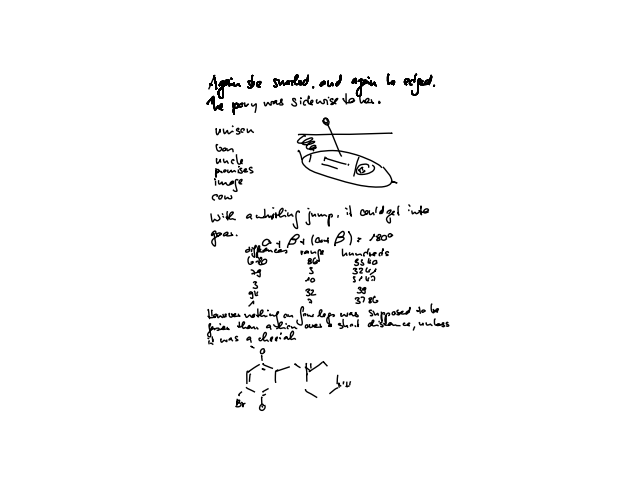 Again she snorted, and again he edged.
The pony was sidewise to her.
unison
ban
uncle
promises
image
cow
With a whirling jump, it could get into
gear.
α + β + (and β) = 180°
differences range hundreds
6-80 86 5540
79 3
3 10
94 32 39
2 3786
However nothing on four legs was supposed to be
faster than a lion over a short distance, unless
it was a cheetah
Br